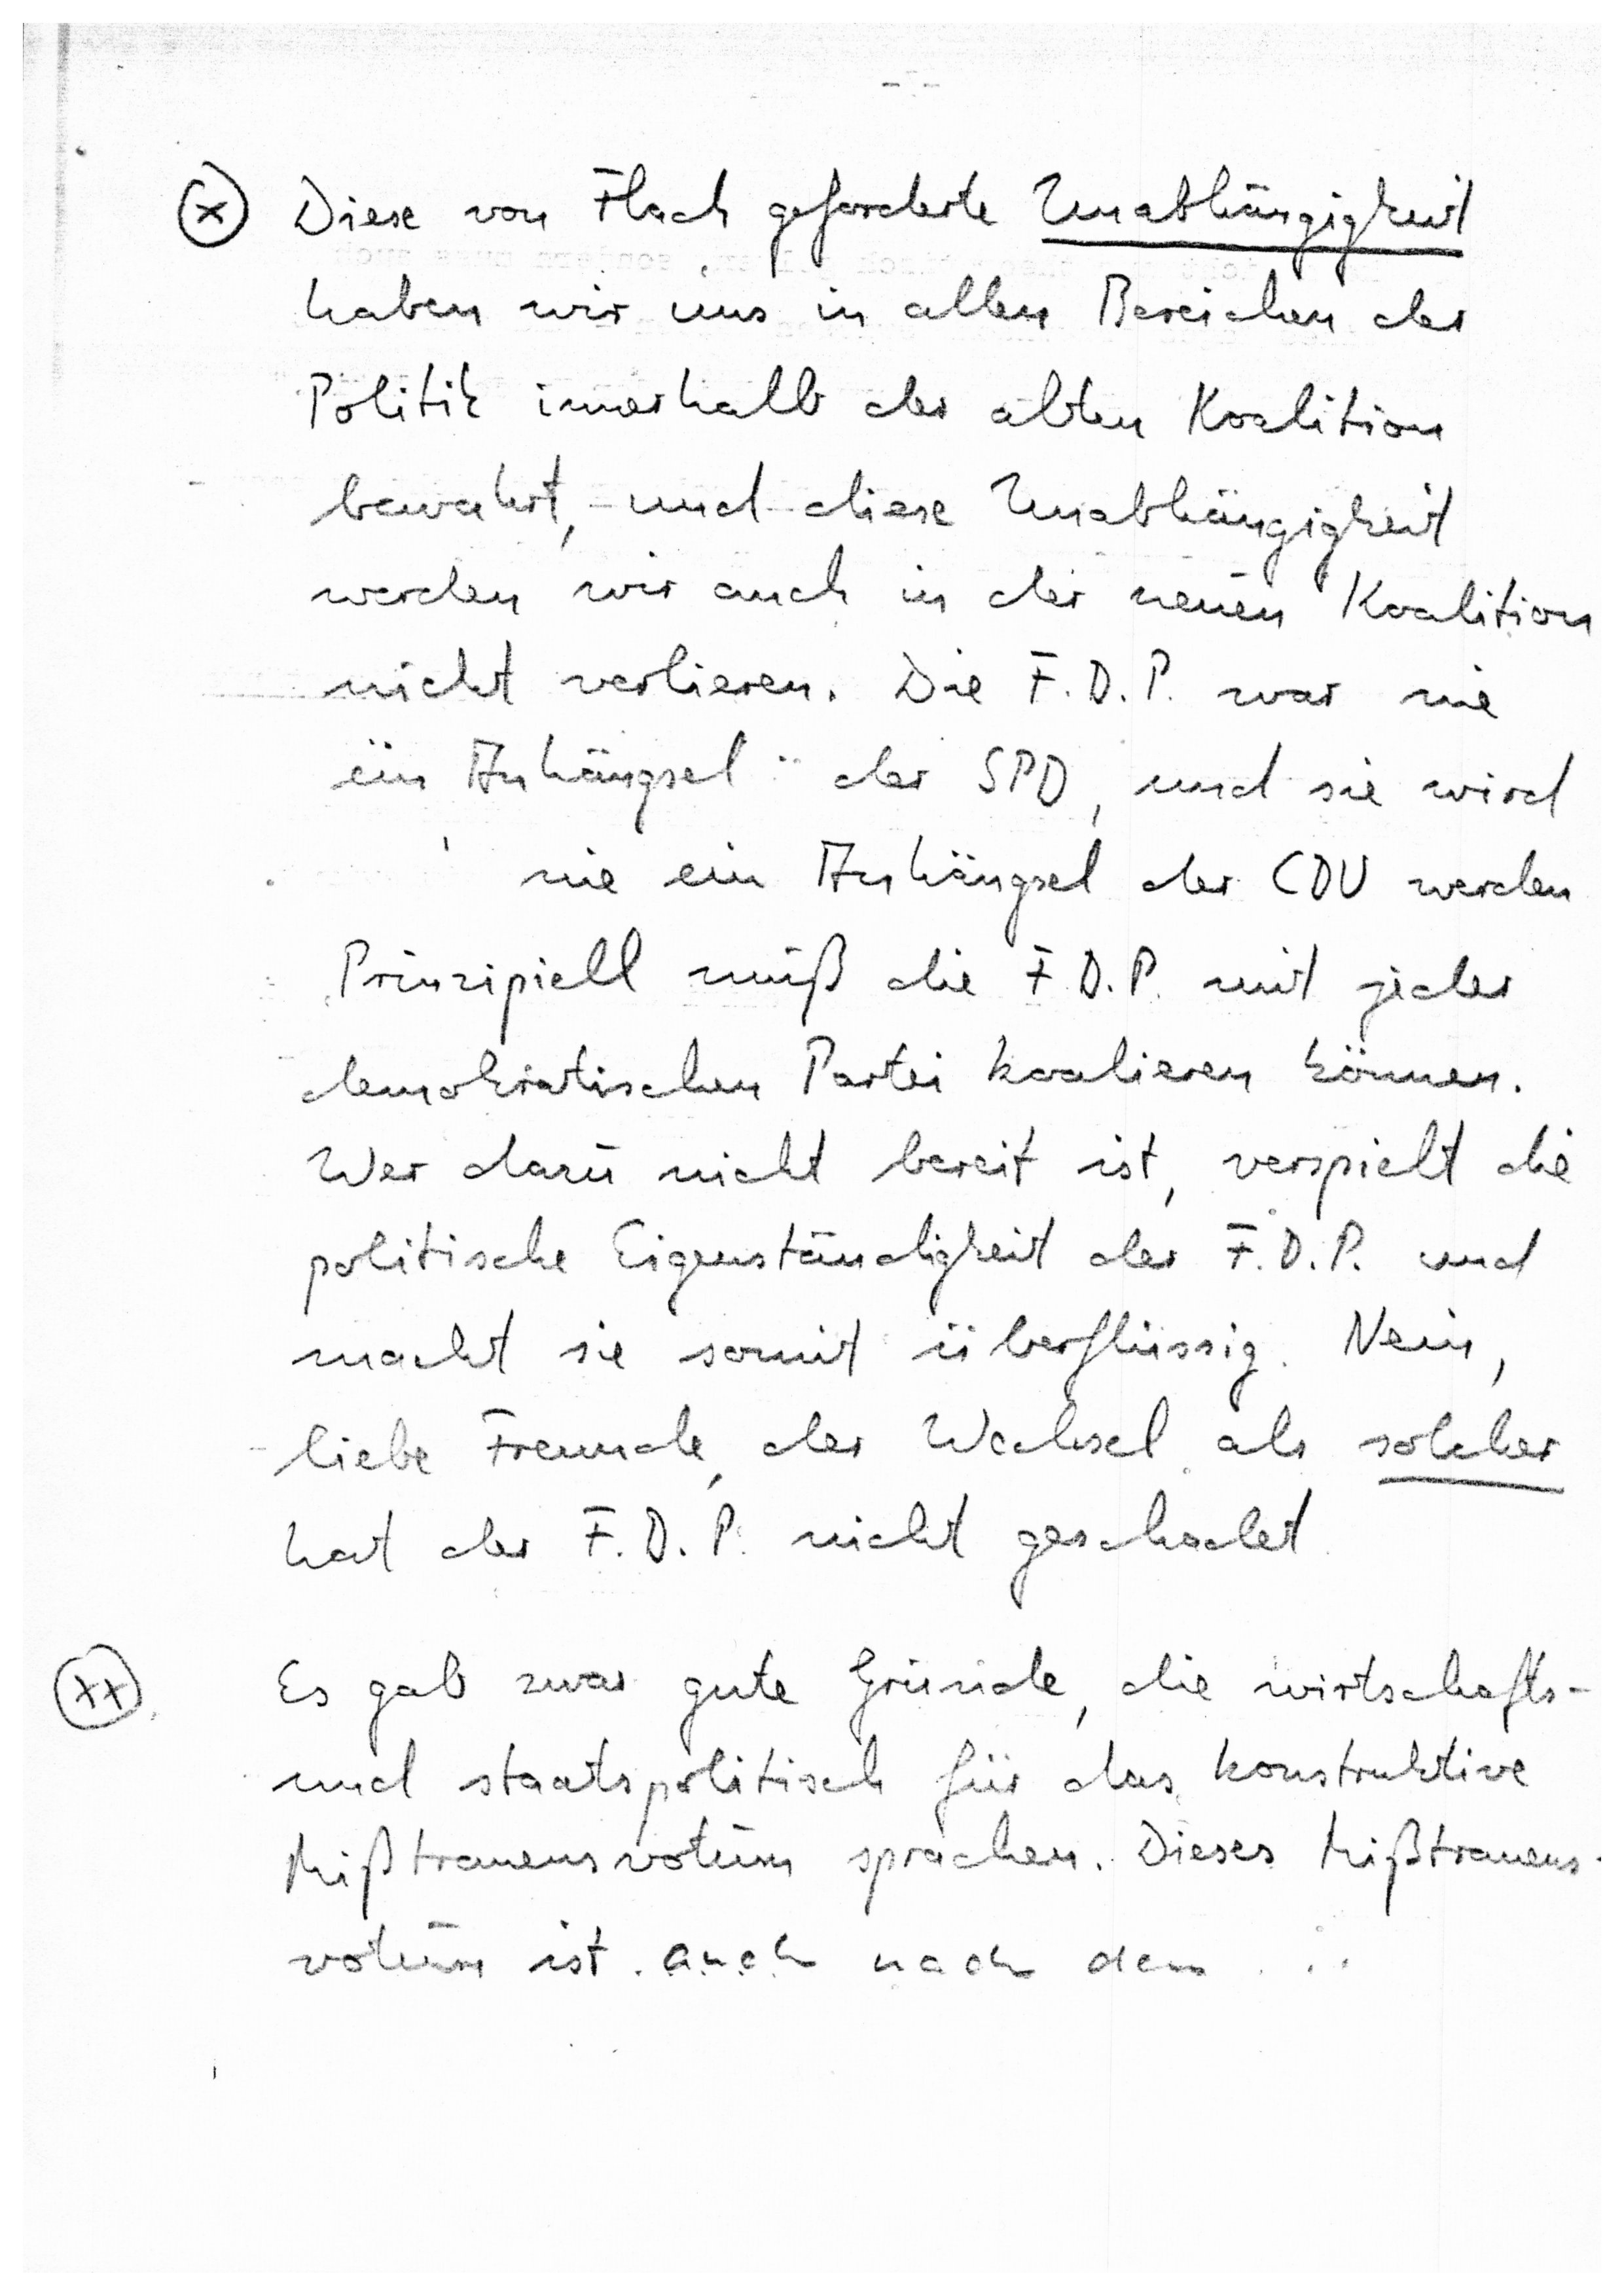 (x) Diese von Flach geforderte Unabhängigkeit
haben wir uns in allen Bereichen der
Politik innerhalb der alten Koalition
bewahrt, und diese Unabhängigkeit
werden wir auch in der neuen Koalition
nicht verlieren. Die F.D.P. war nie
ein Anhängsel der SPD, und sie wird
nie ein Anhängsel der CDU werden
Prinzipiell muß die F.D.P. mit jeder
demokratischen Partei koalieren können.
Wer dazu nicht bereit ist, verspielt die
politische Eigenständigkeit der F.D.P. und
macht sie somit überflüssig. Nein,
liebe Freunde, der Wechsel als solcher
hat der F.D.P. nicht geschadet
(xx) Es gab zwar gute Gründe, die wirtschafts-
und staatspolitisch für das konstruktive
Mißtrauensvotum sprachen. Dieses Mißtrauens-
votum ist auch nach dem ...